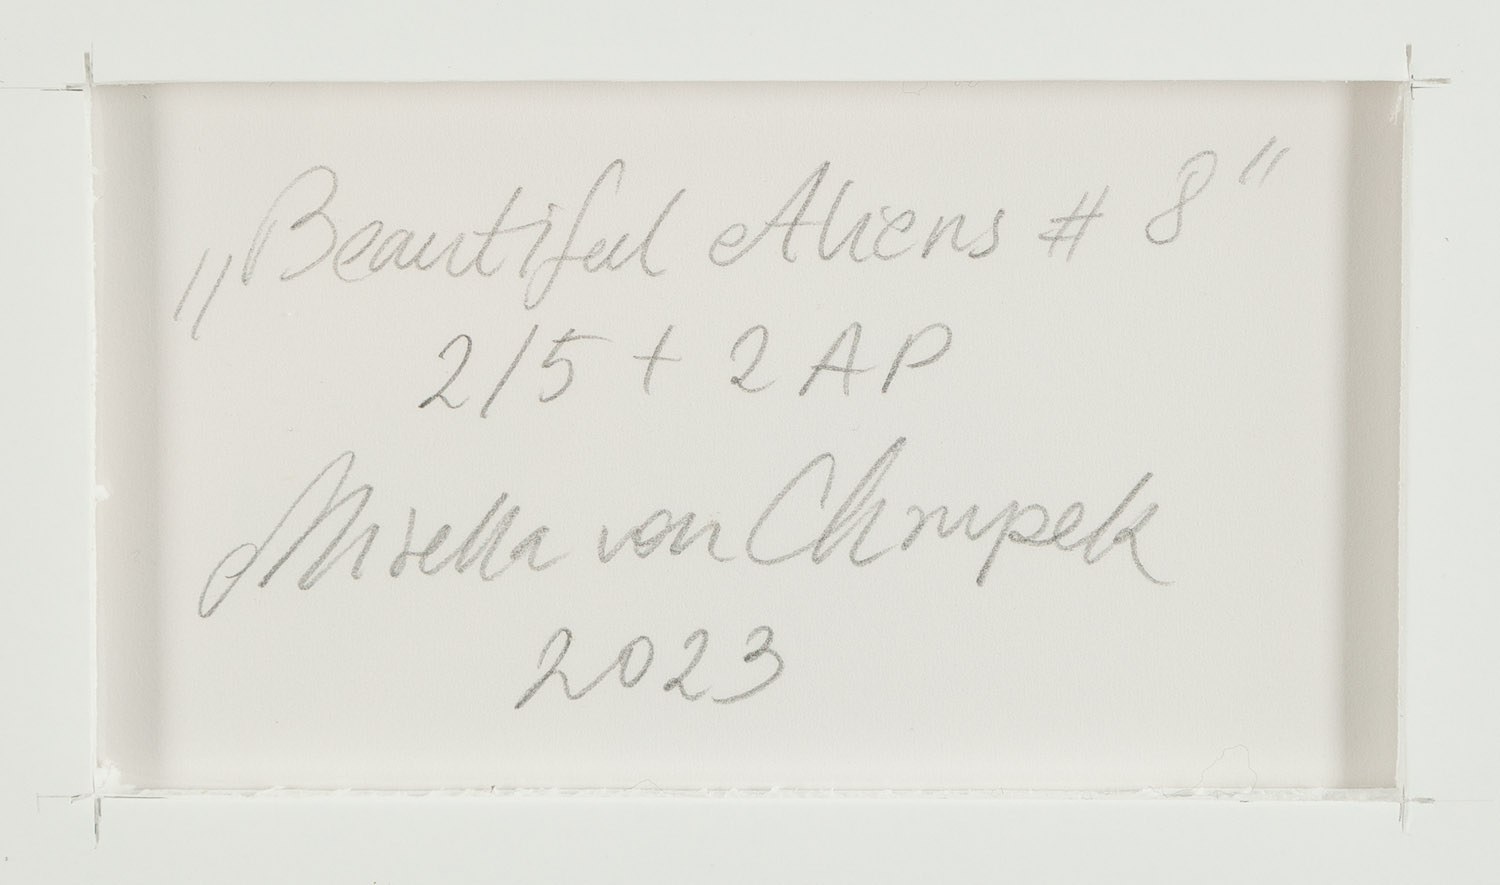 „Beautiful Aliens # 8“
2/5 + 2 AP
Mirella von Chrupek
2023